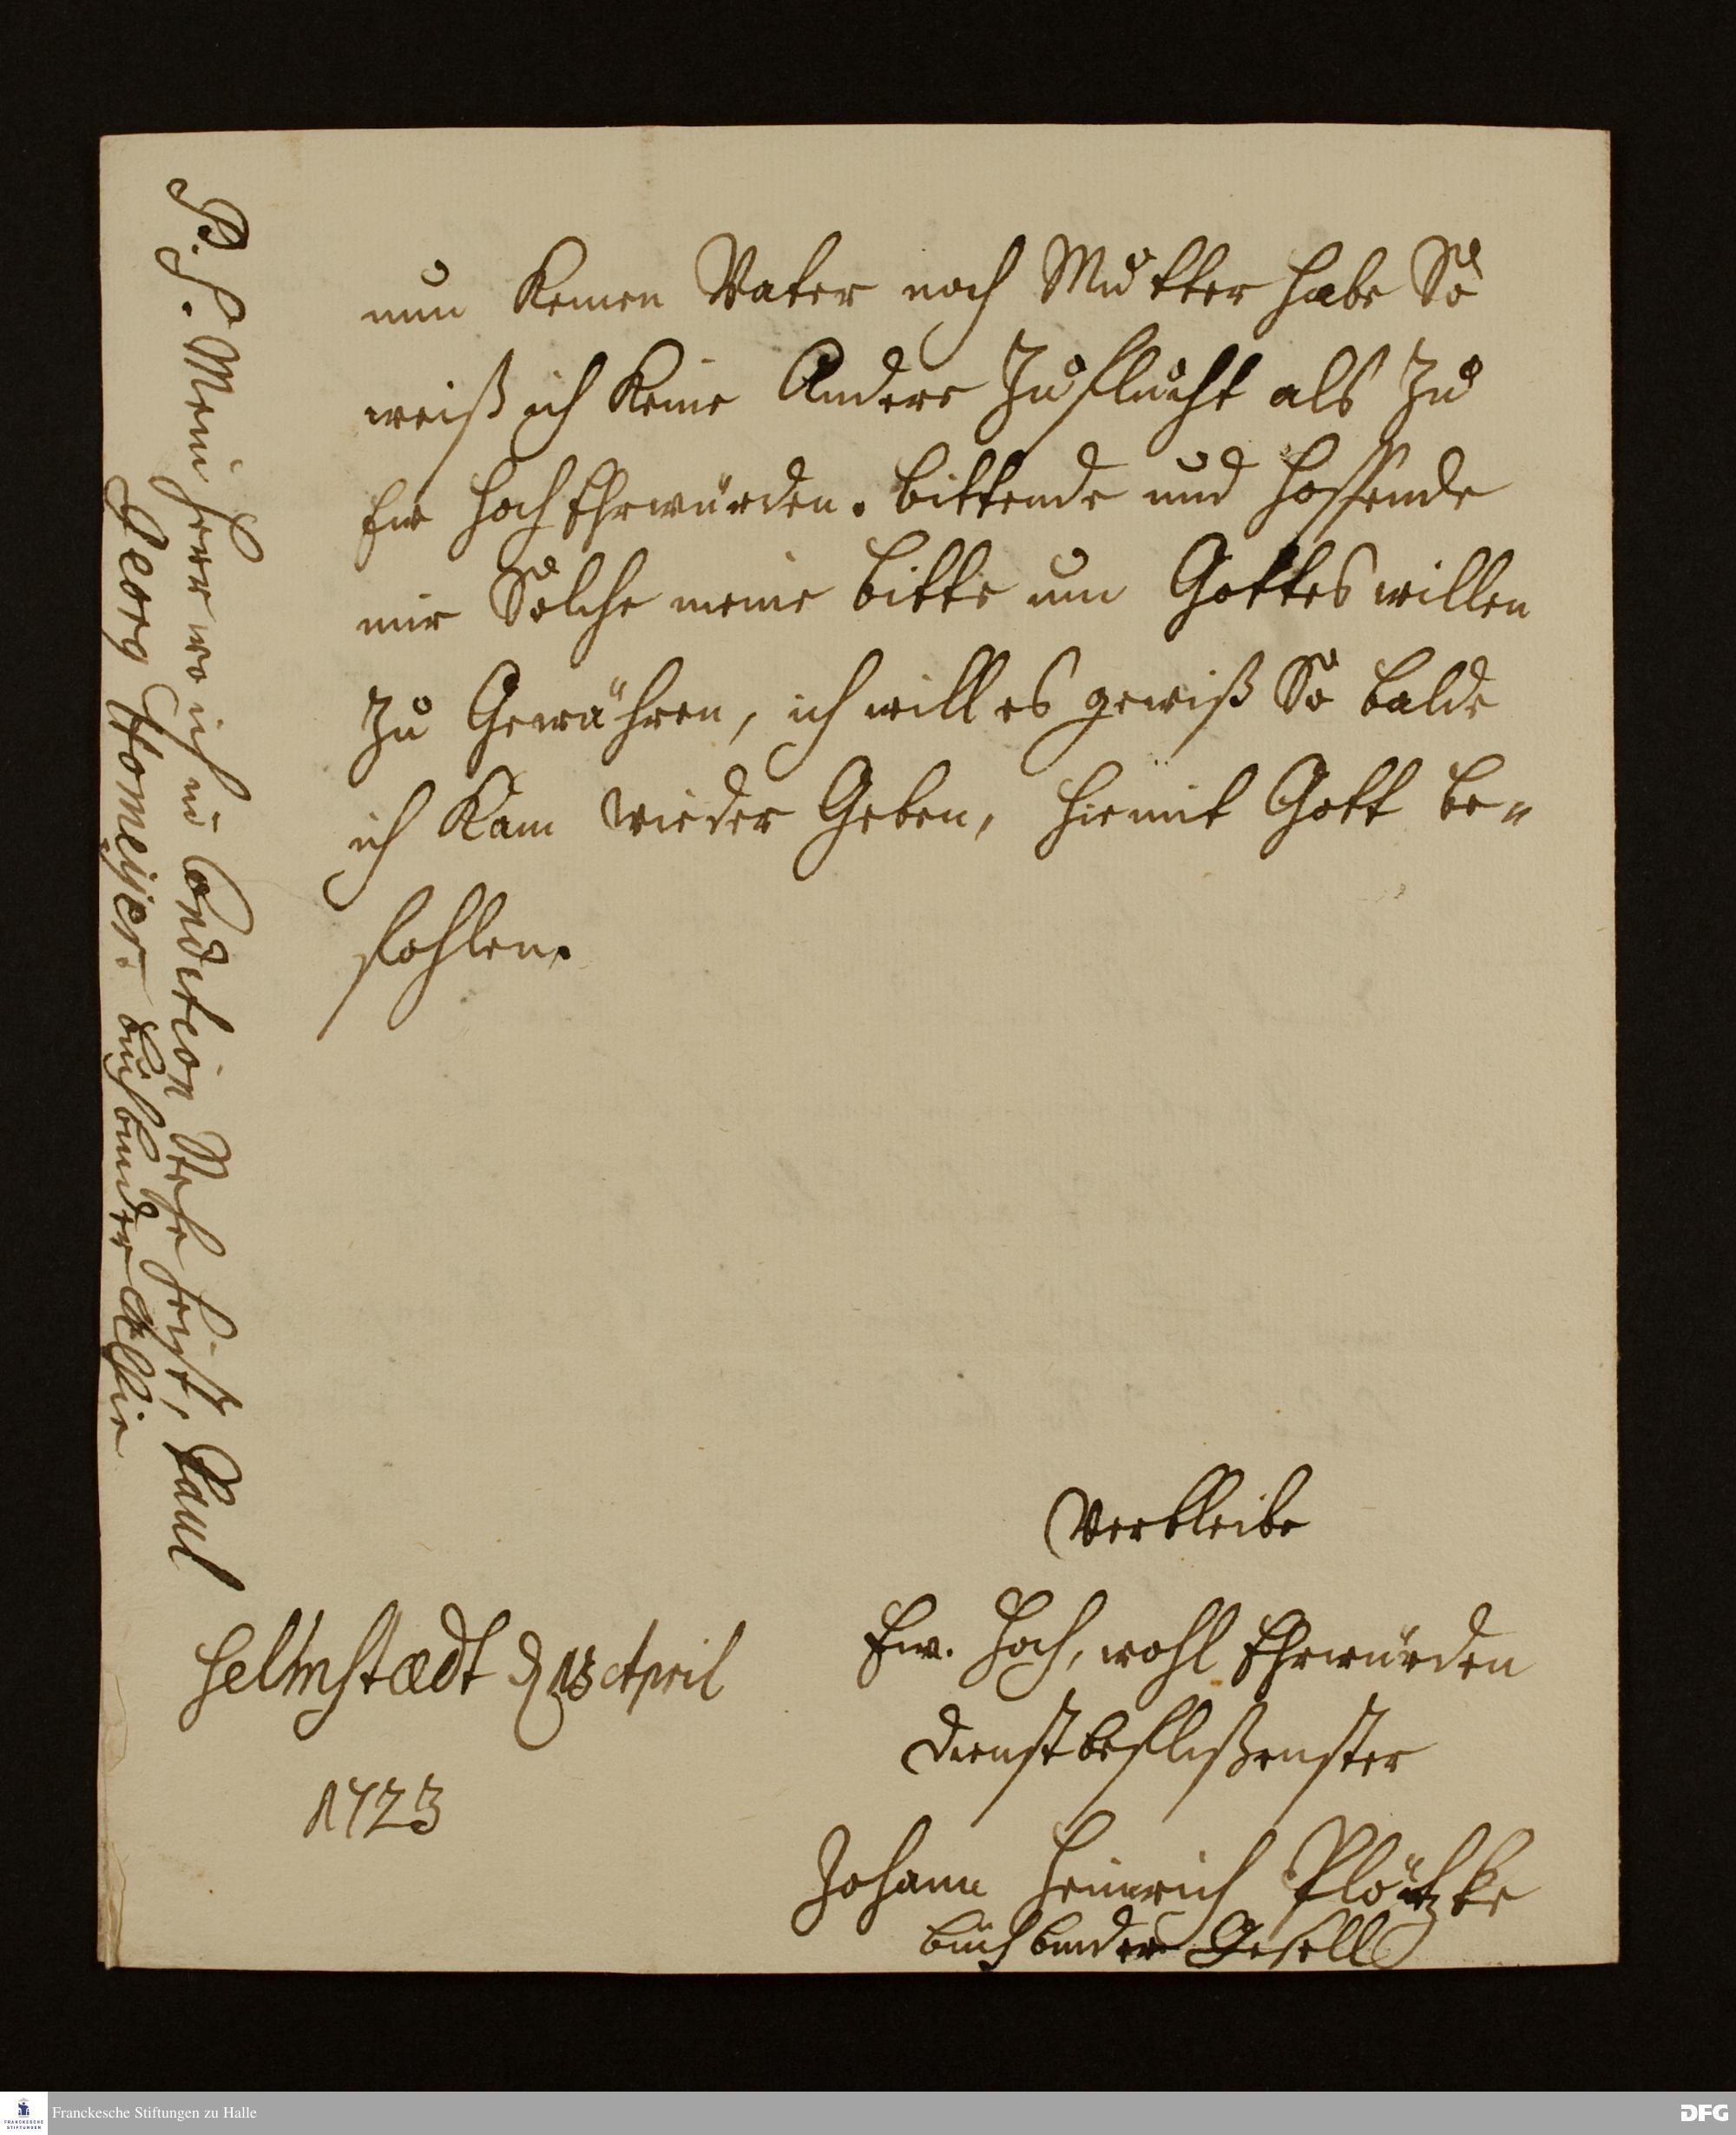 nun Keinen Vater noch Mutter habe So
weiß ich Keine Andere Zuflucht als Zu
Ew Hoch Ehrwürden. bittende und hoffende
mir Solche meine bitte um Gottes willen
zu Gewähren, ich will es gewiß So balde
ich Kam wieder Geben, hiemit Gott be=
fohlen.
Verbleibe
Ew. Hoch, wohl Ehrwürden
dienstbeflißenster
Johann Heinrich Plötzke
buchbinder Gesell
Helmstædt d 13 April
1723
P. S. Mein Herr wo ich in Condition Stehe heist, Paul
Georg Homeÿer. buchbinder
Franckesche Stiftungen zu Halle
DFG